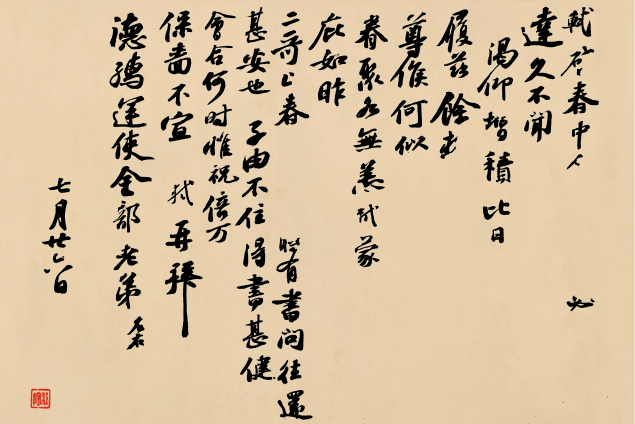 軾啓春中 必
達久不聞
渴仰增積比日
履茲餘
尊候何似
眷聚各無恙軾蒙
庇如昨
二哥上春 有書問往還
甚安也子由不住得書甚健
會合何時惟祝倍万
保嗇不宣 軾再拜
德孺運使金部老弟 左右
七月廿六日